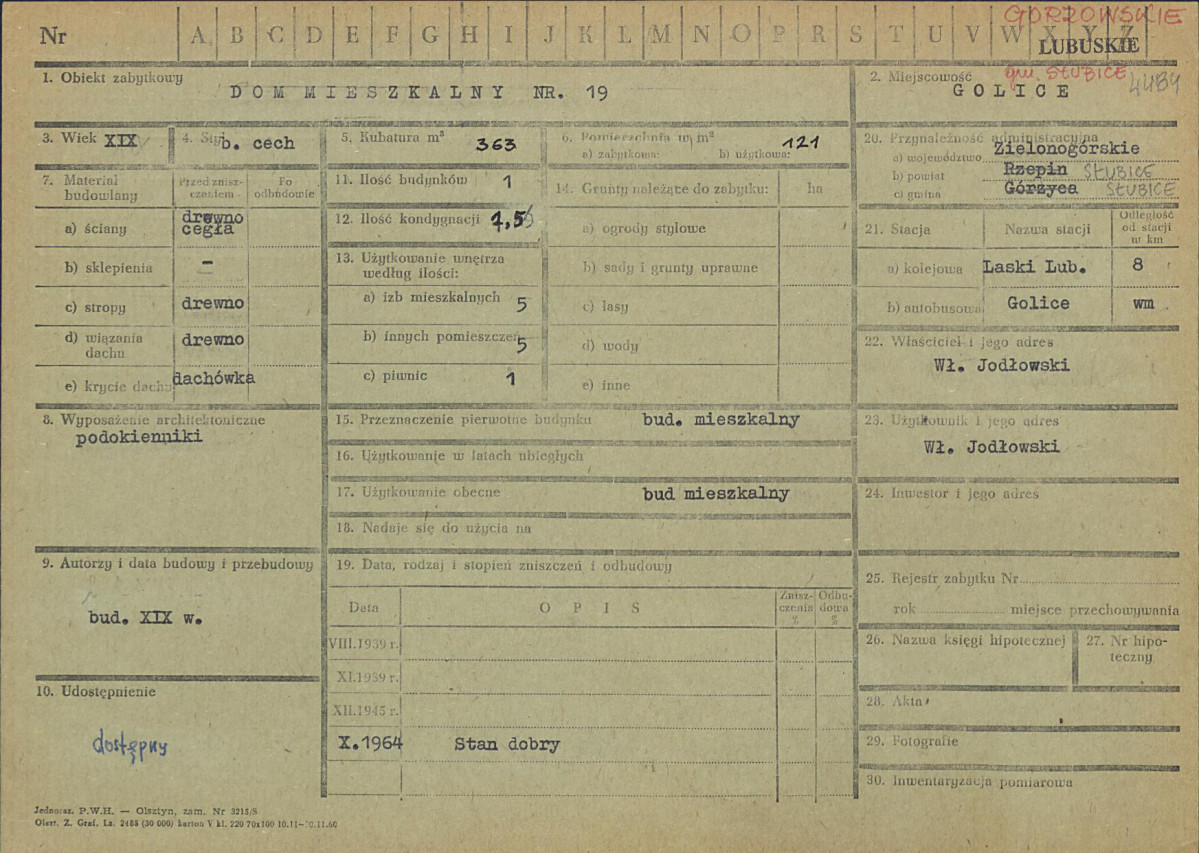 GORZOWSKIE
Nr A B C D E F G H I J K L M N O P R S T U V W X Y Z
LUBUSKIE
1. Obiekt zabytkowy
DOM MIESZKALNY NR. 19
2. Miejscowość
gm. SŁUBICE 4484
GOLICE
3. Wiek XIX
4. Styl b. cech
5. Kubatura m³ 363
6. Powierzchnia w m²
a) zabytkowa: b) użytkowa: 121
20. Przynależność administracyjna
a) województwo Zielonogórskie
b) powiat Rzepin SŁUBICE
c) gmina Górzyca SŁUBICE
7. Materiał budowlany
Przed zniszczeniem
Po odbudowie
a) ściany drewno cegła
b) sklepienia –
c) stropy drewno
d) wiązania dachu drewno
e) krycie dachu dachówka
11. Ilość budynków 1
12. Ilość kondygnacji 1,5
13. Użytkowanie wnętrza
według ilości:
a) izb mieszkalnych 5
b) innych pomieszczeń 5
c) piwnic 1
14. Grunty należące do zabytku: ha
a) ogrody stylowe
b) sady i grunty uprawne
c) lasy
d) wody
e) inne
21. Stacja Nazwa stacji Odległość od stacji w km
a) kolejowa Laski Lub. 8
b) autobusowa Golice wm
22. Właściciel i jego adres
Wł. Jodłowski
8. Wyposażenie architektoniczne
podokienniki
15. Przeznaczenie pierwotne budynku bud. mieszkalny
16. Użytkowanie w latach ubiegłych
17. Użytkowanie obecne bud mieszkalny
18. Nadaje się do użycia na
23. Użytkownik i jego adres
Wł. Jodłowski
24. Inwestor i jego adres
9. Autorzy i data budowy i przebudowy
bud. XIX w.
10. Udostępnienie
dostępny
19. Data, rodzaj i stopień zniszczeń i odbudowy
Data OPIS Zniszczenia % Odbudowa %
VIII.1939 r.
XI.1939 r.
XII.1945 r.
X.1964 Stan dobry
25. Rejestr zabytku Nr
rok miejsce przechowywania
26. Nazwa księgi hipotecznej
27. Nr hipoteczny
28. Akta
29. Fotografie
30. Inwentaryzacja pomiarowa
Jednoraz. P.W.H. — Olsztyn, zam. Nr 3215/S
Olszt. Z. Graf. Lz. 2488 (30 000) karton V kl. 220 70x100